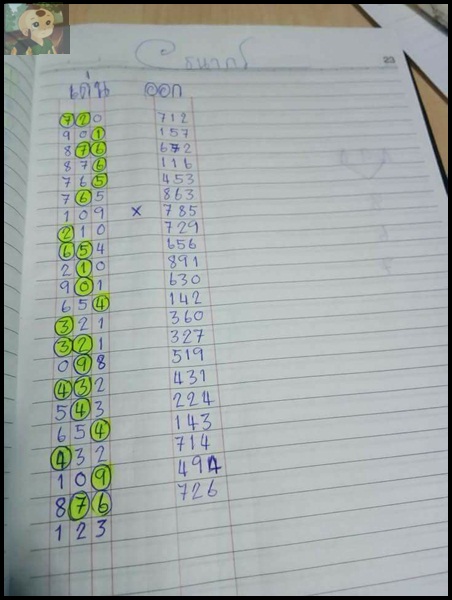 23
เด่น ออก
720 712
901 157
876 672
876 116
765 453
765 863
109 x 785
210 729
654 656
210 891
901 630
654 142
321 360
321 327
098 519
432 431
543 224
654 143
432 714
109 494
876 726
123